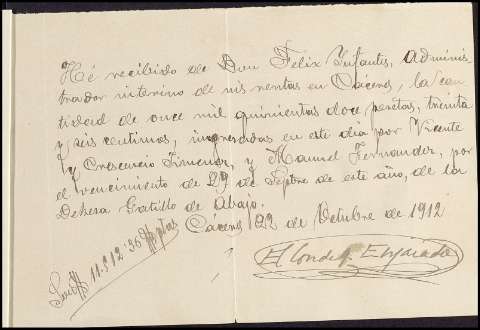 Hé recibido de Don Felix Infantes, Adminis-
trador interino de mis rentas en Cáceres, la can
tidad de once mil quinientas doce pesetas, treinta
y seis centimos, ingresadas en este dia por Vicente
y Crescencio Jimenez, y Manuel Fernandez, por
el vencimiento de 29 de Septbre de este año, de la
Dehesa Gatillo de Abajo.
Cáceres 22 de Octubre de 1912
Son 11.512'36 ptas
El Conde de